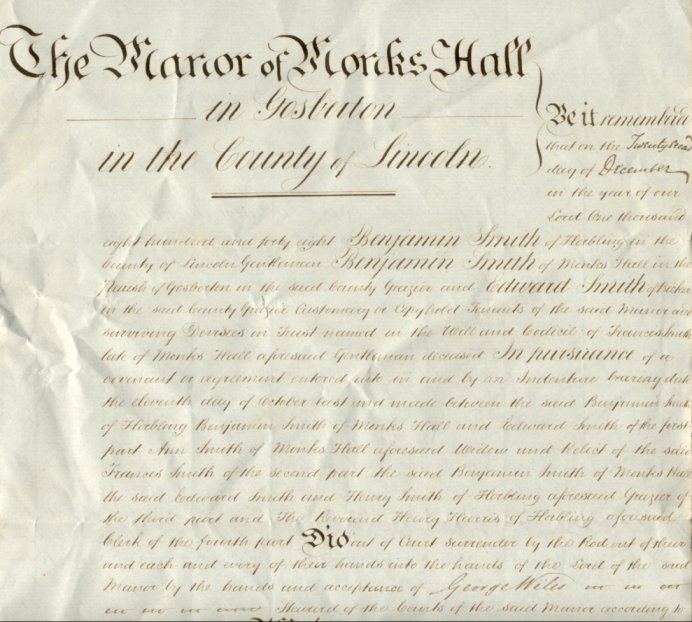 The Manor of Monks Hall
in Gosberton
in the County of Lincoln.
Be it remembered
that on the Twenty second
day of December
in the year of our
Lord One thousand
eight hundred and forty eight Benjamin Smith of Horbling in the
County of Lincoln Gentleman Benjamin Smith of Monks Hall in the
Parish of Gosberton in the said County Grazier and Edward Smith of Bicker
in the said County Grazier Customary or Copyhold Tenants of the said Manor and
surviving Devisees in Trust named in the Will and Codicil of Francis Smith
late of Monks Hall aforesaid Gentleman deceased In pursuance of a
covenant or agreement entered into in and by an Indenture bearing date
the eleventh day of October last and made between the said Benjamin Smith
of Horbling Benjamin Smith of Monks Hall and Edward Smith of the first
part Ann Smith of Monks Hall aforesaid Widow and Relict of the said
Francis Smith of the second part the said Benjamin Smith of Monks Hall
the said Edward Smith and Henry Smith of Horbling aforesaid Grazier of
the third part and The Reverend Henry Harris of Horbling aforesaid
Clerk of the fourth part Did out of Court surrender by the Rod out of their
and each and every of their hands into the hands of the Lord of the said
Manor by the hands and acceptance of George Wiles
Steward of the Courts of the said Manor according to